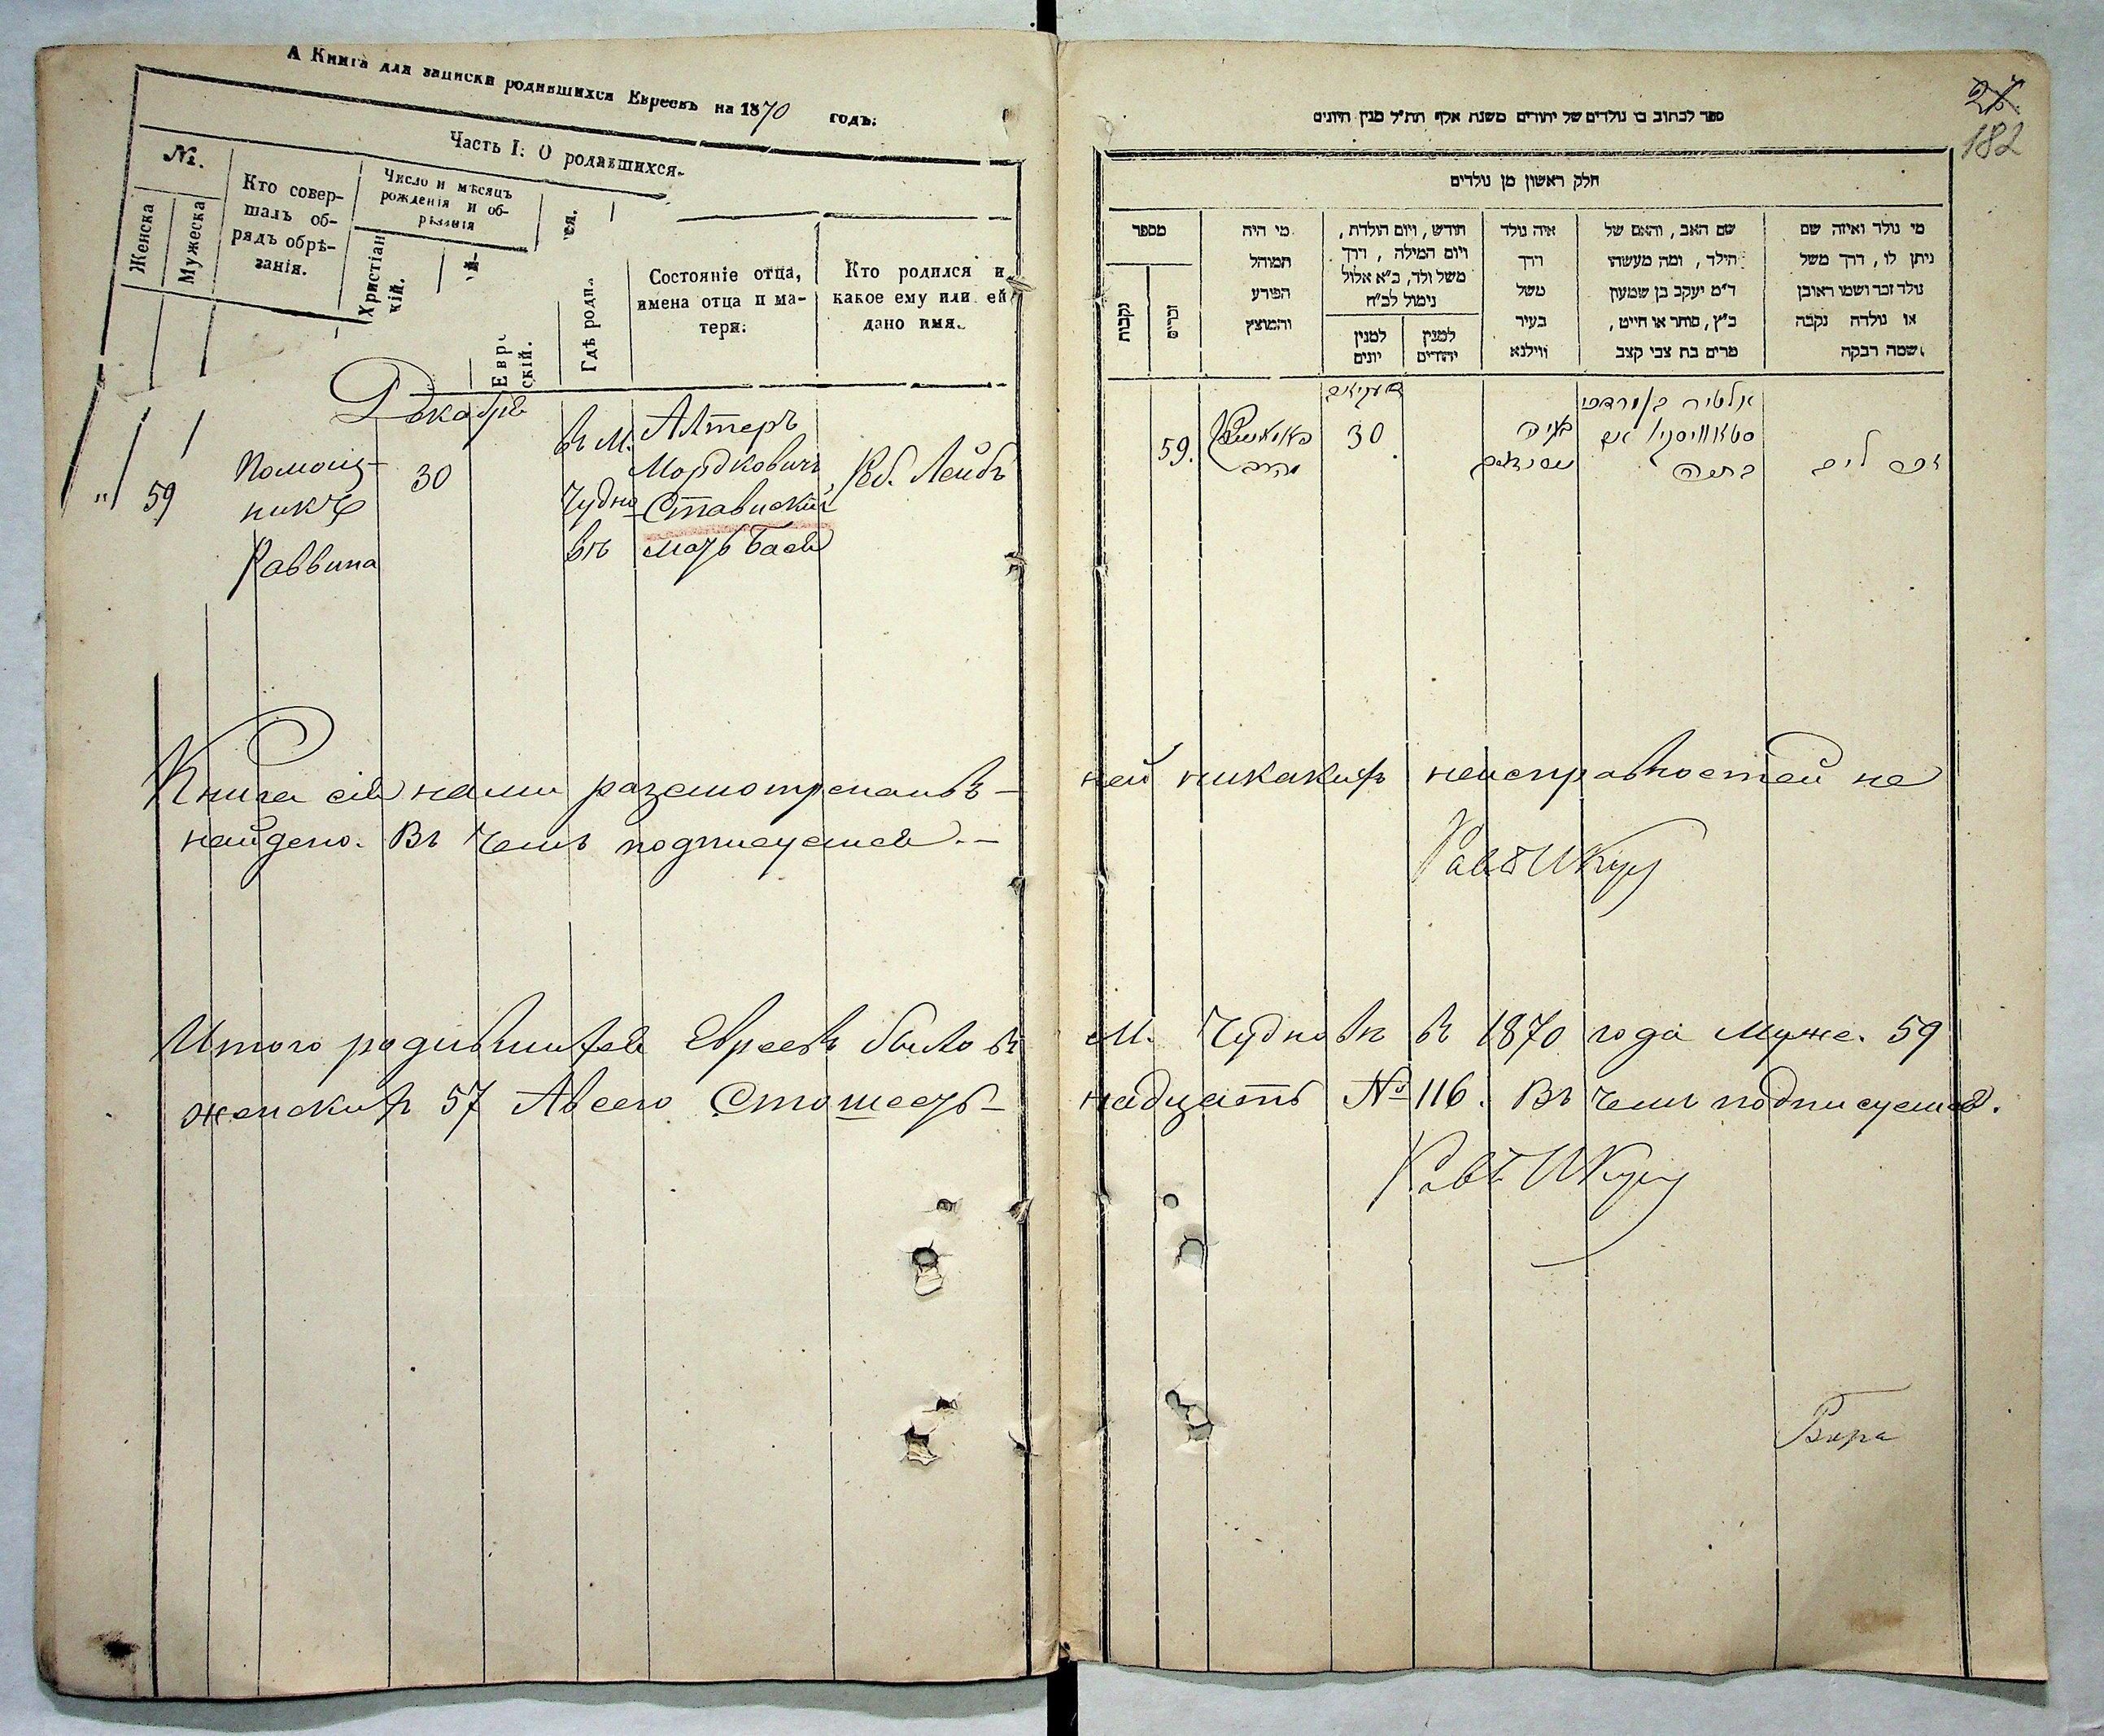 А Книга для записки родившихся Евреевъ на 1870 годъ.
Часть I. О родившихся.
№.
Женска
Мужеска
Кто совер-
шалъ об-
рядъ обрѣ-
занія.
Число и мѣсяцъ
рожденія и об-
рѣзанія
Христіан
кій.
Евре
скій.
Гдѣ роди
ся.
Состояніе отца,
имена отца и ма-
тери.
Кто родился и
какое ему или ей
дано имя.
Декабрь
"
59
Помощ-
никъ
Раввина
30
въ М.
Чудно
вѣ
Алтеръ
Мордковичъ
Ставискій
мать Бася
Лейбъ
Книга сія нами разсмотрена въ
найдено. Въ чемъ подписуемся.—
Итого родившихся Евреевъ было въ
женскихъ 57 А всего Сто шест-
27.
182
ספר לכתוב בו נולדים של יהודים משנת אלף תת״ל מנין היונים
חלק ראשון מן נולדים
מספר
נקבות
זכרים
מי היה
המוהל
הפורע
והמוצץ
חודש, ויום הולדת,
ויום המילה, דרך
משל ולד, כ״א אלול
נימול לכ״ח
למנין
יונים
למנין
יהודים
איה נולד
דרך
משל
בעיר
ווילנא
שם האב, והאם של
הילד, ומה מעשהו
ד״מ יעקב בן שמעון
כ״ץ, סוחר או חייט,
מרים בת צבי קצב
מי נולד ואיזה שם
ניתן לו, דרך משל
נולד זכר ושמו ראובן
או נולדה נקבה
ושמה רבקה
59.
30
אלטיר
ней никакихъ неисправностей не
М. Чудновѣ въ 1870 года Муже. 59
надцать № 116. Въ чемъ подписуемся.